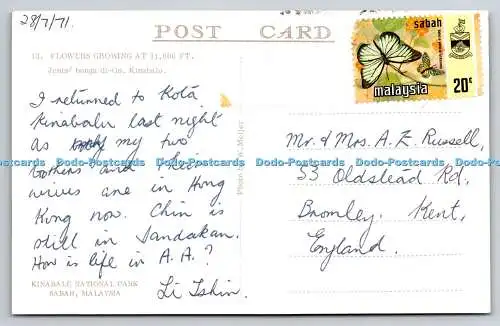 28/7/71.
POST CARD
13. FLOWERS GROWING AT 11,000 FT.
Jenis² bunga di-Gn. Kinabalu.
I returned to Kota
Kinabalu last night
as my two
brothers and their
wives are in Hong
Kong now. Chin is
still in Sandakan.
How is life in A.A.?
Li Tshin.
KINABALU NATIONAL PARK
SABAH, MALAYSIA
Photo by W. Meijer
sabah
malaysia
20c
Mr. & Mrs. A. E. Russell,
53 Oldstead Rd,
Bromley, Kent,
England.
Dodo-Postcards Dodo-Postcards Dodo-Postcards Dodo-Postcards Dodo-Postcards Dodo-Postcards